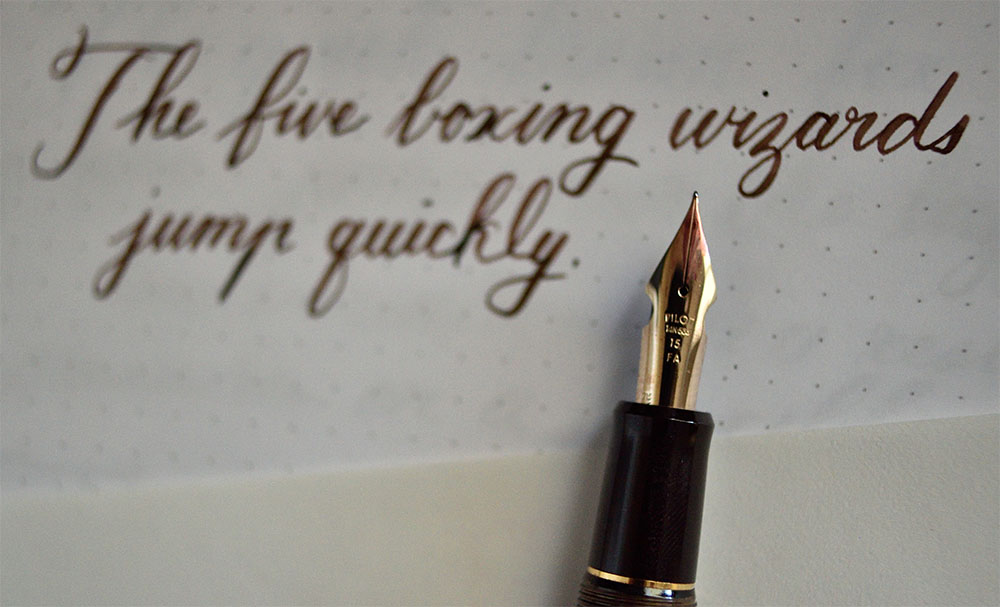 The five boxing wizards
jump quickly.
PILOT
14K585
15
FA